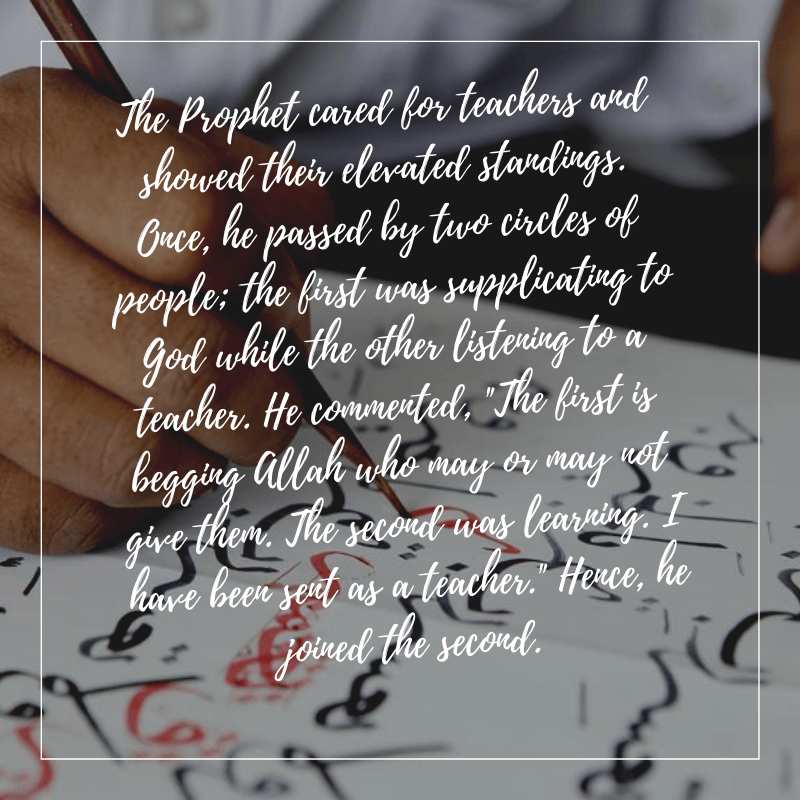 The Prophet cared for teachers and
showed their elevated standings.
Once, he passed by two circles of
people; the first was supplicating to
God while the other listening to a
teacher. He commented, "The first is
begging Allah who may or may not
give them. The second was learning. I
have been sent as a teacher." Hence, he
joined the second.